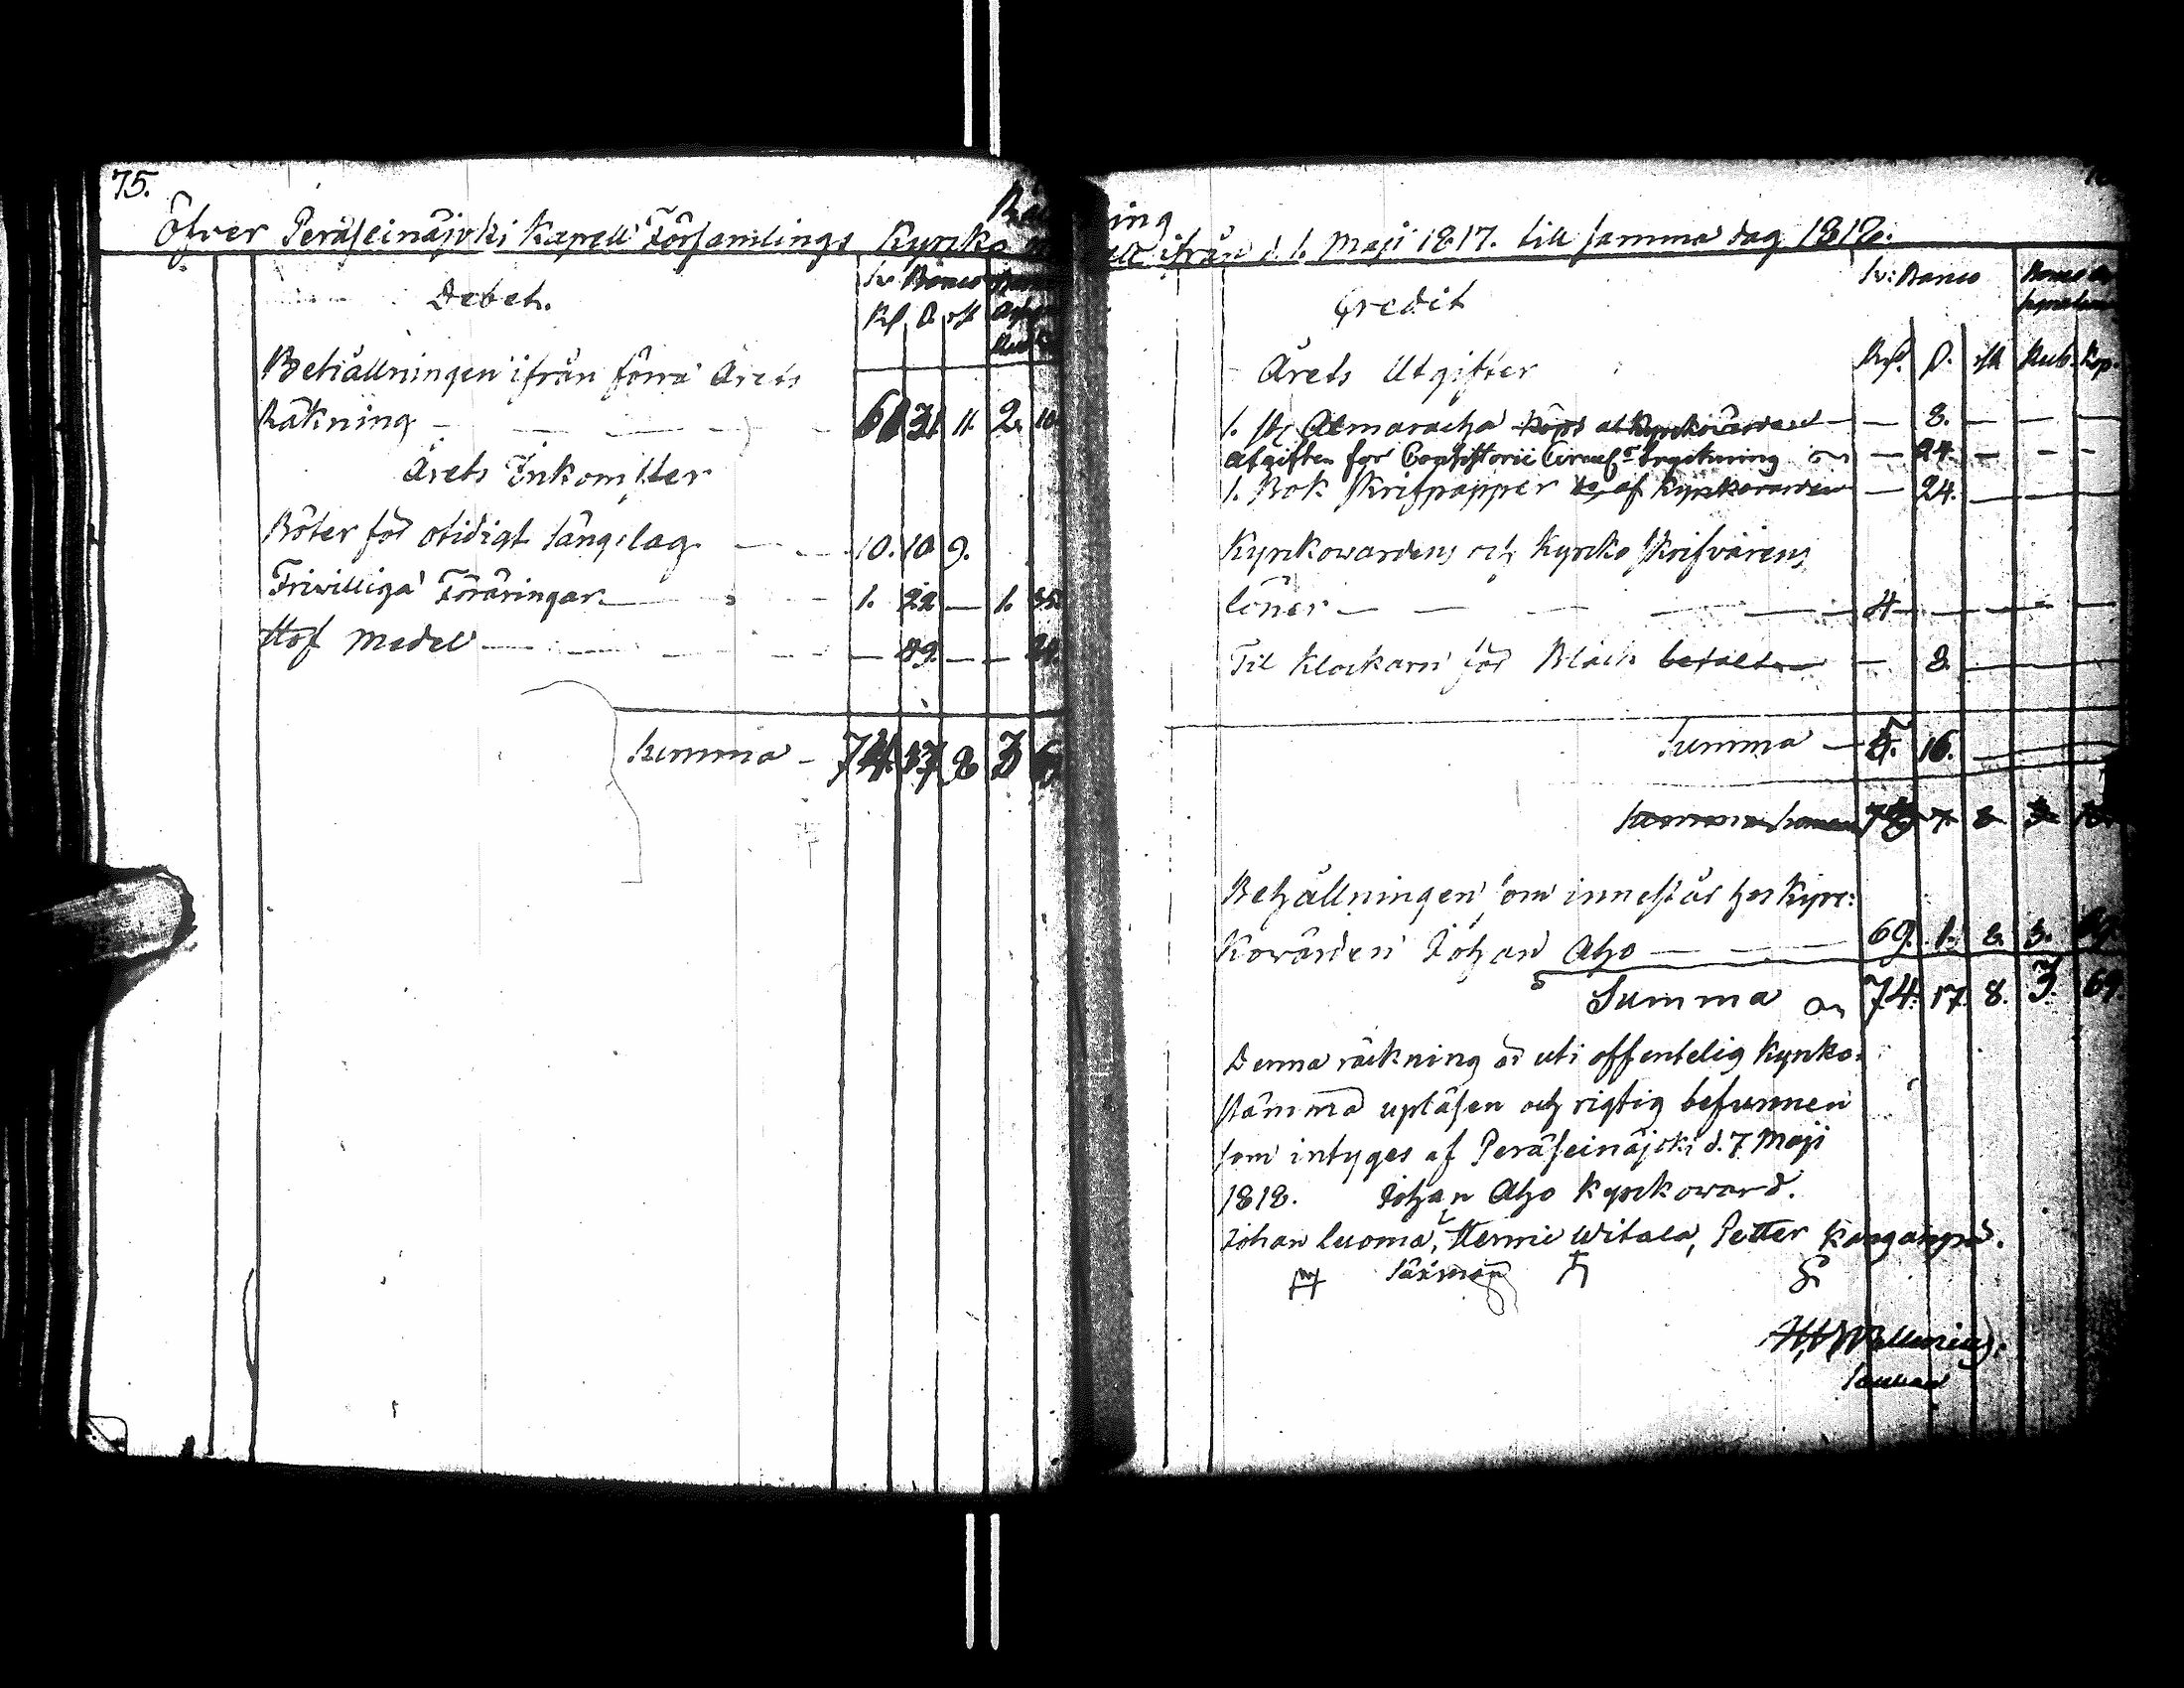 75.
Öfver Peräseinäjoki Kapell Församlings Kyrko
ning
ifrån d. 1. Maji 1817. till samma dag 1818.
Debet.
Sv. Banco
Rd S. rst
Behållningen ifrån förra Årets
Räkning — — — — 61 31 11. 2. 10.
Årets Inkomster
Böter för otidigt sånglag — — 10. 10 9.
Friwilliga Föräringar — — 1. 22 — 1. 35
Hof Medel — — — — — 39 — —
Summa — 74. 17 8 3
Credit
Sv: Banco
Årets Utgifter
Rd. S. rst Rub. Kop.
1. st Almanacha köpt af Kyrkovärden — — 8. — — —
Afgiften for Consistorii Circul. — 24. — — —
1. Bok Skrifpapper af Kyrkovarden — 24. — — —
Kyrkowardens och Kyrko Skrifvarens
löner — — — — 4 — — — —
Til Klockarn för Bläck betalt — — 8. — — —
Summa — 5. 16. — — —
7. 8
Behållningen som innestår hos Kyrc:
Kowärden Johan Aho — — — 69. 1. 8. 3. 69.
Summa 74. 17. 8. 3. 69.
Denna räkning är uti offentelig Kyrko-
stämma upläsen och rigtig befunnen
som intyges af Peräseinäjoki d. 7 Maji
1818. Johan Aho Kyrkoward.
Johan Luoma, Henric Witala, Petter